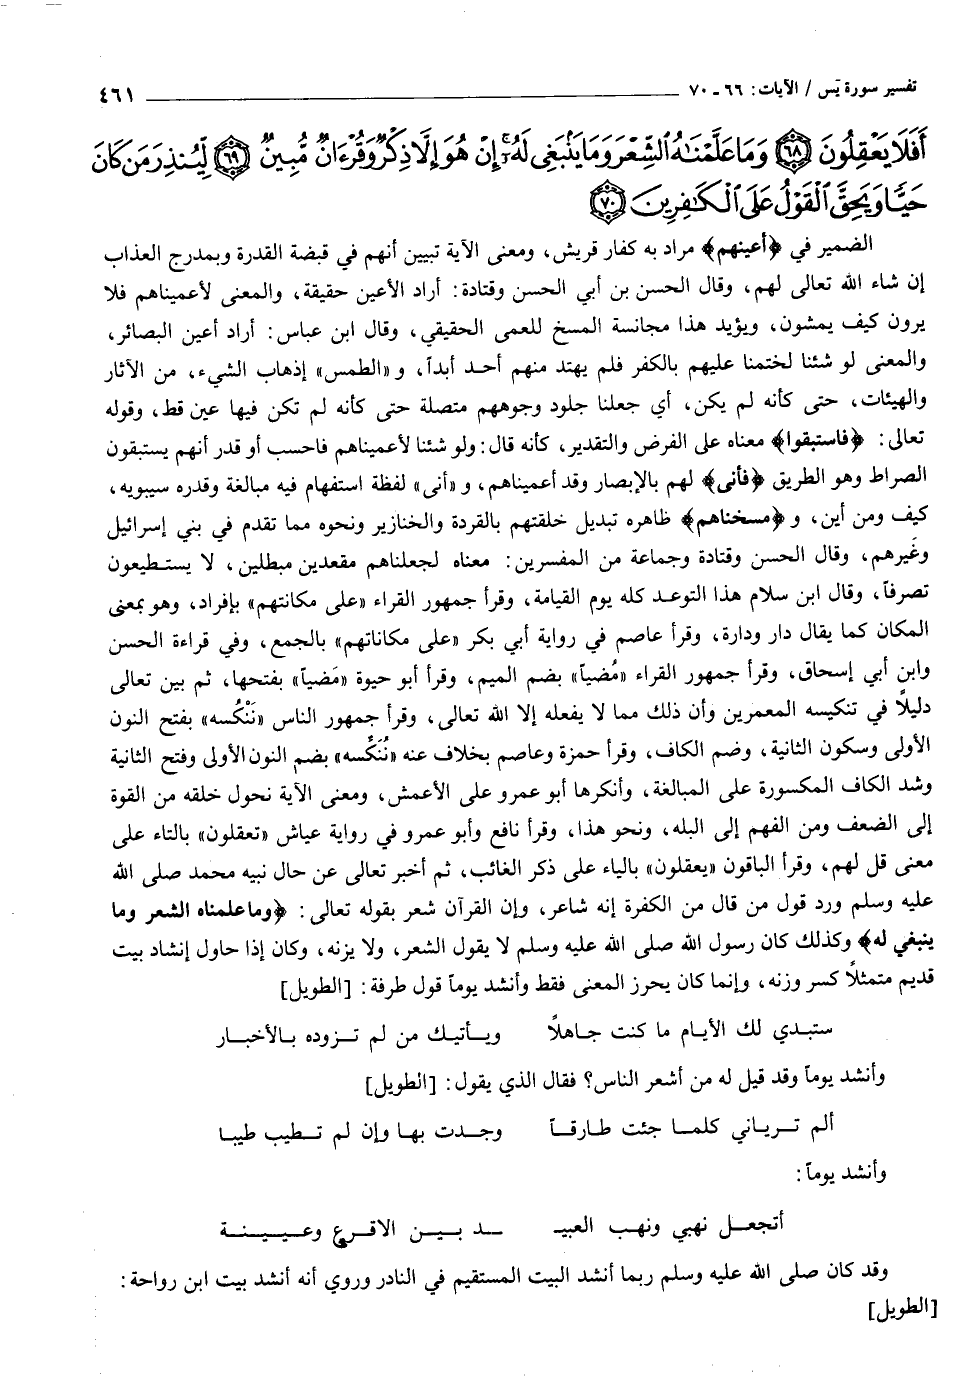 تفسير سورة يس / الآيات: ٦٦ ـ ٧٠ ٤٦١
أَفَلَا يَعْقِلُونَ ﴿٦٨﴾ وَمَا عَلَّمْنَاهُ الشِّعْرَ وَمَا يَنْبَغِي لَهُ إِنْ هُوَ إِلَّا ذِكْرٌ وَقُرْءَانٌ مُّبِينٌ ﴿٦٩﴾ لِّيُنذِرَ مَن كَانَ
حَيًّا وَيَحِقَّ الْقَوْلُ عَلَى الْكَافِرِينَ ﴿٧٠﴾
الضمير في ﴿أعينهم﴾ مراد به كفار قريش، ومعنى الآية تبيين أنهم في قبضة القدرة وبمدرج العذاب
إن شاء الله تعالى لهم، وقال الحسن بن أبي الحسن وقتادة: أراد الأعين حقيقة، والمعنى لأعميناهم فلا
يرون كيف يمشون، ويؤيد هذا مجانسة المسخ للعمى الحقيقي، وقال ابن عباس: أراد أعين البصائر،
والمعنى لو شئنا لختمنا عليهم بالكفر فلم يهتد منهم أحد أبداً، و «الطمس» إذهاب الشيء، من الآثار
والهيئات، حتى كأنه لم يكن، أي جعلنا جلود وجوههم متصلة حتى كأنه لم تكن فيها عين قط، وقوله
تعالى: ﴿فاستبقوا﴾ معناه على الفرض والتقدير، كأنه قال: ولو شئنا لأعميناهم فاحسب أو قدر أنهم يستبقون
الصراط وهو الطريق ﴿فأنى﴾ لهم بالإبصار وقد أعميناهم، و «أنى» لفظة استفهام فيه مبالغة وقدره سيبويه،
كيف ومن أين، و ﴿مسخناهم﴾ ظاهره تبديل خلقتهم بالقردة والخنازير ونحوه مما تقدم في بني إسرائيل
وغيرهم، وقال الحسن وقتادة وجماعة من المفسرين: معناه لجعلناهم مقعدين مبطلين، لا يستطيعون
تصرفاً، وقال ابن سلام هذا التوعد كله يوم القيامة، وقرأ جمهور القراء «على مكانتهم» بإفراد، وهو بمعنى
المكان كما يقال دار ودارة، وقرأ عاصم في رواية أبي بكر «على مكاناتهم» بالجمع، وفي قراءة الحسن
وابن أبي إسحاق، وقرأ جمهور القراء «مُضياً» بضم الميم، وقرأ أبو حيوة «مَضياً» بفتحها، ثم بين تعالى
دليلًا في تنكيسه المعمرين وأن ذلك مما لا يفعله إلا الله تعالى، وقرأ جمهور الناس «نَنْكُسه» بفتح النون
الأولى وسكون الثانية، وضم الكاف، وقرأ حمزة وعاصم بخلاف عنه «نُنَكِّسه» بضم النون الأولى وفتح الثانية
وشد الكاف المكسورة على المبالغة، وأنكرها أبو عمرو على الأعمش، ومعنى الآية نحول خلقه من القوة
إلى الضعف ومن الفهم إلى البله، ونحو هذا، وقرأ نافع وأبو عمرو في رواية عياش «تعقلون» بالتاء على
معنى قل لهم، وقرأ الباقون «يعقلون» بالياء على ذكر الغائب، ثم أخبر تعالى عن حال نبيه محمد صلى الله
عليه وسلم ورد قول من قال من الكفرة إنه شاعر، وإن القرآن شعر بقوله تعالى: ﴿وما علمناه الشعر وما
ينبغي له﴾ وكذلك كان رسول الله صلى الله عليه وسلم لا يقول الشعر، ولا يزنه، وكان إذا حاول إنشاد بيت
قديم متمثلًا كسر وزنه، وإنما كان يحرز المعنى فقط وأنشد يوماً قول طرفة: [الطويل]
ستبدي لك الأيام ما كنت جاهلًا ويأتيك من لم تزوده بالأخبار
وأنشد يوماً وقد قيل له من أشعر الناس؟ فقال الذي يقول: [الطويل]
ألم تريانى كلما جئت طارقاً وجدت بها وإن لم تطيب طيبا
وأنشد يوماً:
أتجعل نهبي ونهب العبيـ ـد بين الاقرع وعيينة
وقد كان صلى الله عليه وسلم ربما أنشد البيت المستقيم في النادر وروي أنه أنشد بيت ابن رواحة:
[الطويل]